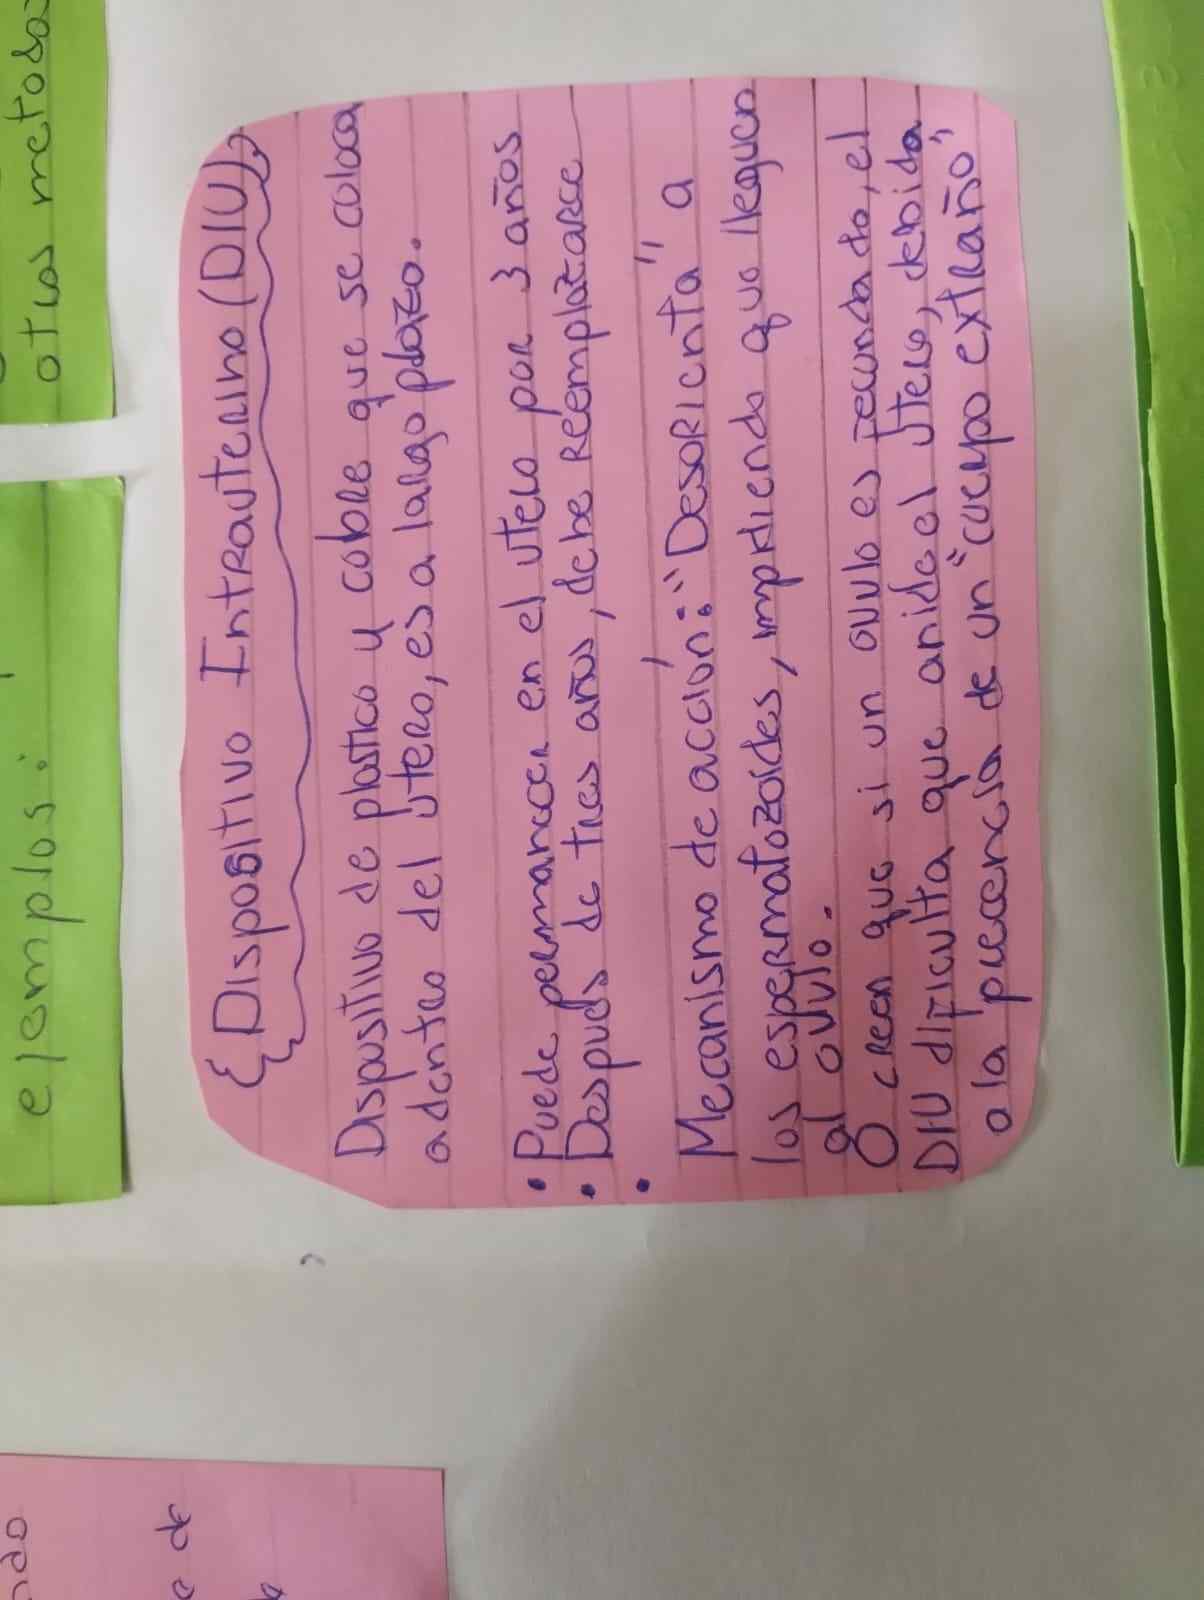 otros metodos
ejemplos:
Dispositivo Intrauterino (DIU)
Dispositivo de plastico y cobre que se coloca
adentro del utero, es a largo plazo.
• Puede permanecer en el utero por 3 años
• Después de tres años, debe reemplazarce
•
Mecanismo de acción: "Desorienta" a
los espermatozoides, impidiendo que lleguen
al ovulo.
O creen que si un ovulo es fecundado, el
DIU dificulta que anide el utero, debida
a la precencia de un "cuerpo extraño"
de